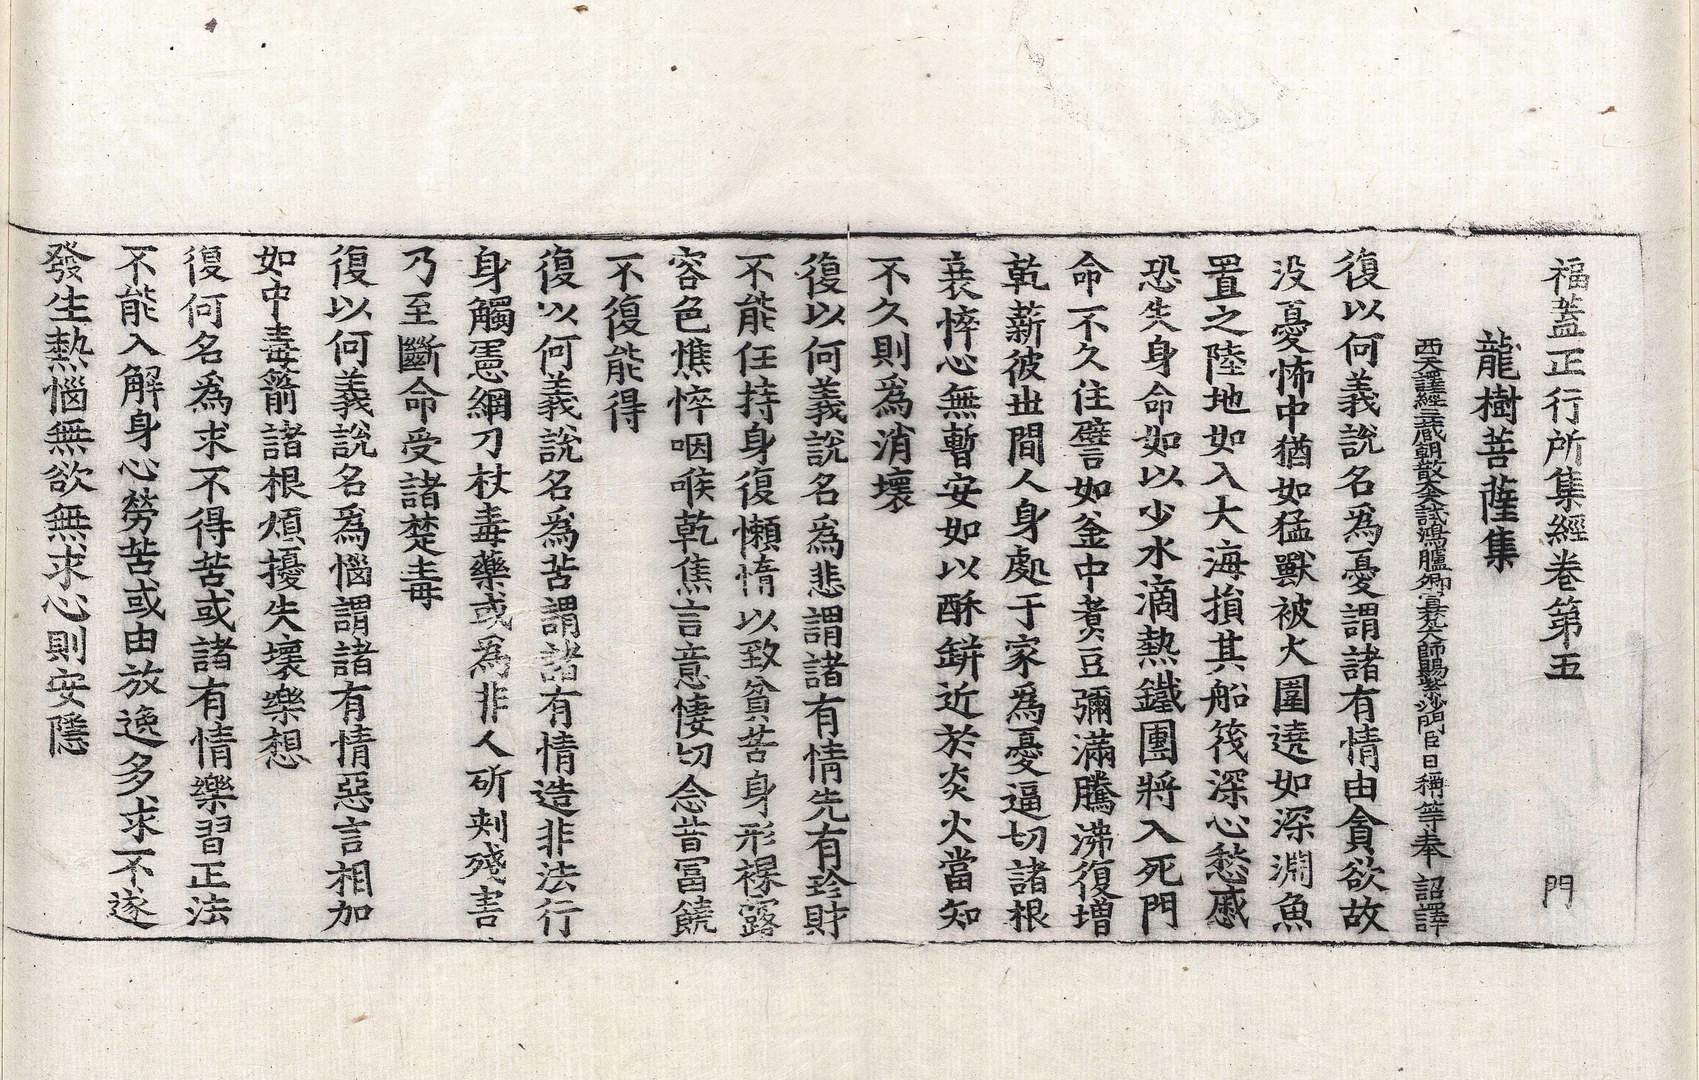 福蓋正行所集經卷第五 門
龍樹菩薩集
西天譯經三藏朝散大夫試鴻臚卿宣梵大師賜紫沙門臣日稱等奉 詔譯
復以何義說名為憂謂諸有情由貪欲故
没憂怖中猶如猛獸被火圍遶如深淵魚
置之陸地如入大海損其船筏深心愁慼
恐失身命如以少水滴熱鐵團將入死門
命不久住譬如釜中煑豆彌滿騰沸復増
乾薪彼丗間人身處于家為憂逼切諸根
衰悴心無暫安如以酥缾近於炎火當知
不久則為消壞
復以何義說名為悲謂諸有情先有珎財
不能任持身復懶惰以致貧苦身形裸露
容色憔悴咽喉乾焦言意悽切念昔冨饒
不復能得
復以何義說名為苦謂諸有情造非法行
身觸憲綱刀杖毒藥或為非人斫刺殘害
乃至斷命受諸楚毒
復以何義說名為惱謂諸有情惡言相加
如中毒箭諸根煩擾失壞樂想
復何名為求不得苦或諸有情樂習正法
不能入解身心勞苦或由放逸多求不遂
發生熱惱無欲無求心則安隱